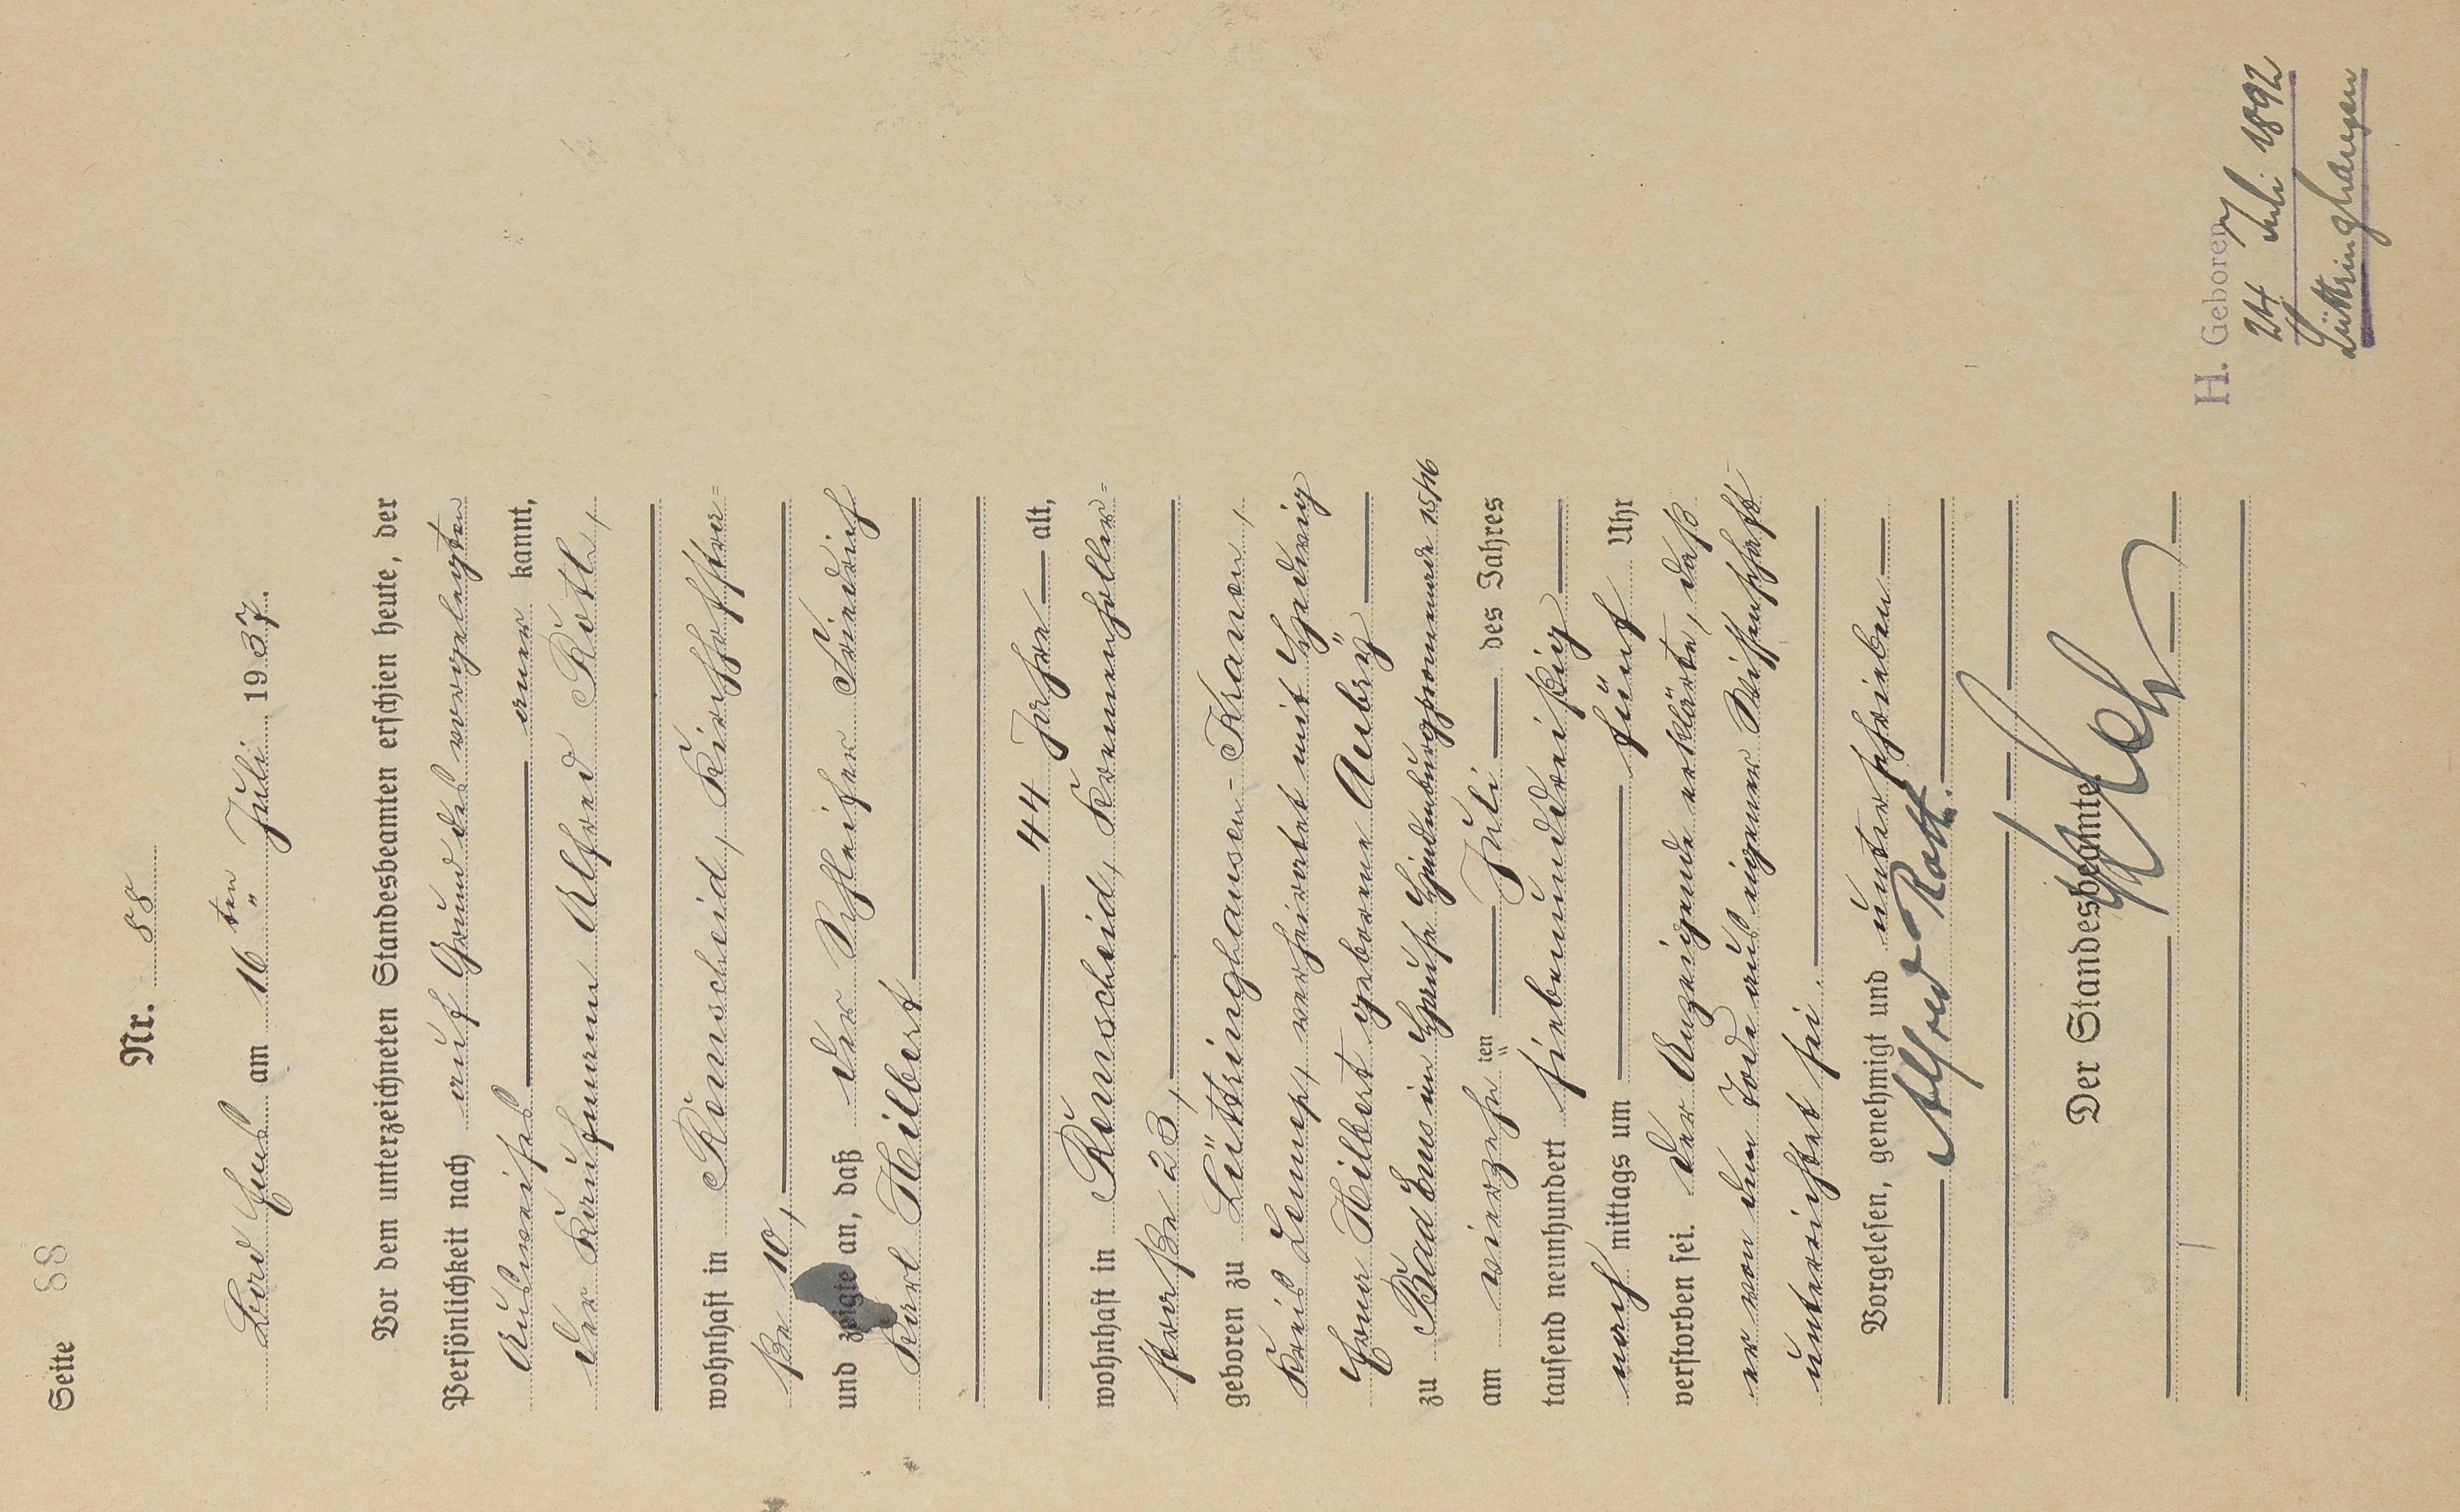 Seite 88
Nr. 88
Bad Ems am 16ten Juli 1937.
Vor dem unterzeichneten Standesbeamten erschien heute, der
Persönlichkeit nach auf Grund des vorgelegten
Ausweises anerkannt,
der Kaufmann Alfred Roth,
wohnhaft in Remscheid, Kirchhofstra=
ße 10,
und zeigte an, daß der Schleifer Friedrich
Karl Hilbert
44 Jahre alt,
wohnhaft in Remscheid,
straße 23,
geboren zu Lüttringhausen-Kranen,
Kreis Lennep, verheiratet mit Hedwig
Erna Hilbert geborene Aubry
zu Bad Ems im Hause Hindenburgpromenade 15/16
am vierzehnten Juli des Jahres
tausend neunhundert siebenunddreißig
nach mittags um fünf Uhr
verstorben sei. Der Anzeigende erklärte, daß
er von dem Tode aus eigener Wissenschaft
unterrichtet sei.
Vorgelesen, genehmigt und unterschrieben
Alfred Roth.
Der Standesbeamte
H. Geboren
24 Juli 1892
Lüttringhausen